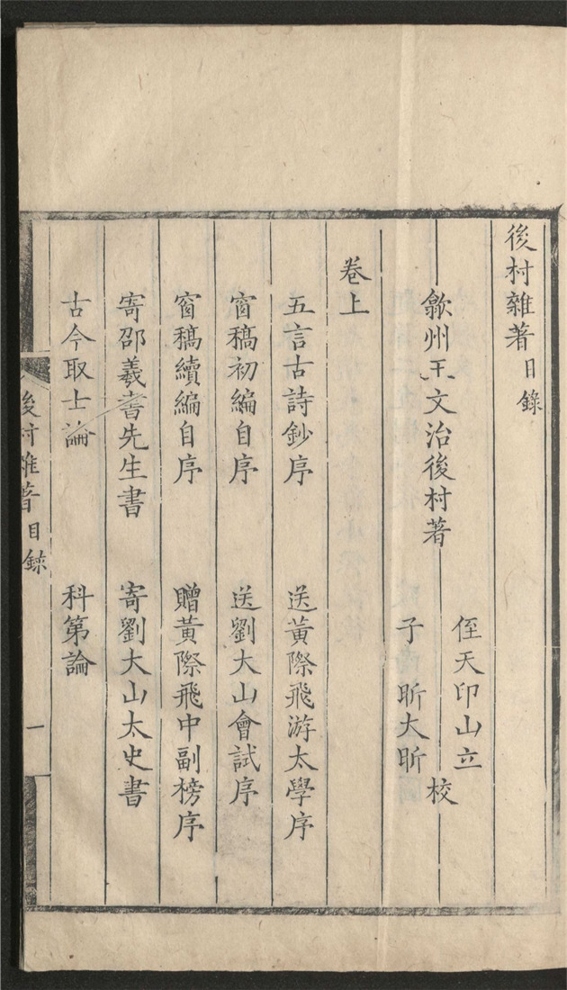 後村雜著目錄
歙州王文治後村著
侄天印山立
子南昕大昕
校
卷上
五言古詩鈔序
送黃際飛游太學序
窗稿初編自序
送劉大山會試序
窗稿續編自序
贈黃際飛中副榜序
寄邵羲書先生書
寄劉大山太史書
古今取士論
科第論
後村雜著目錄
一